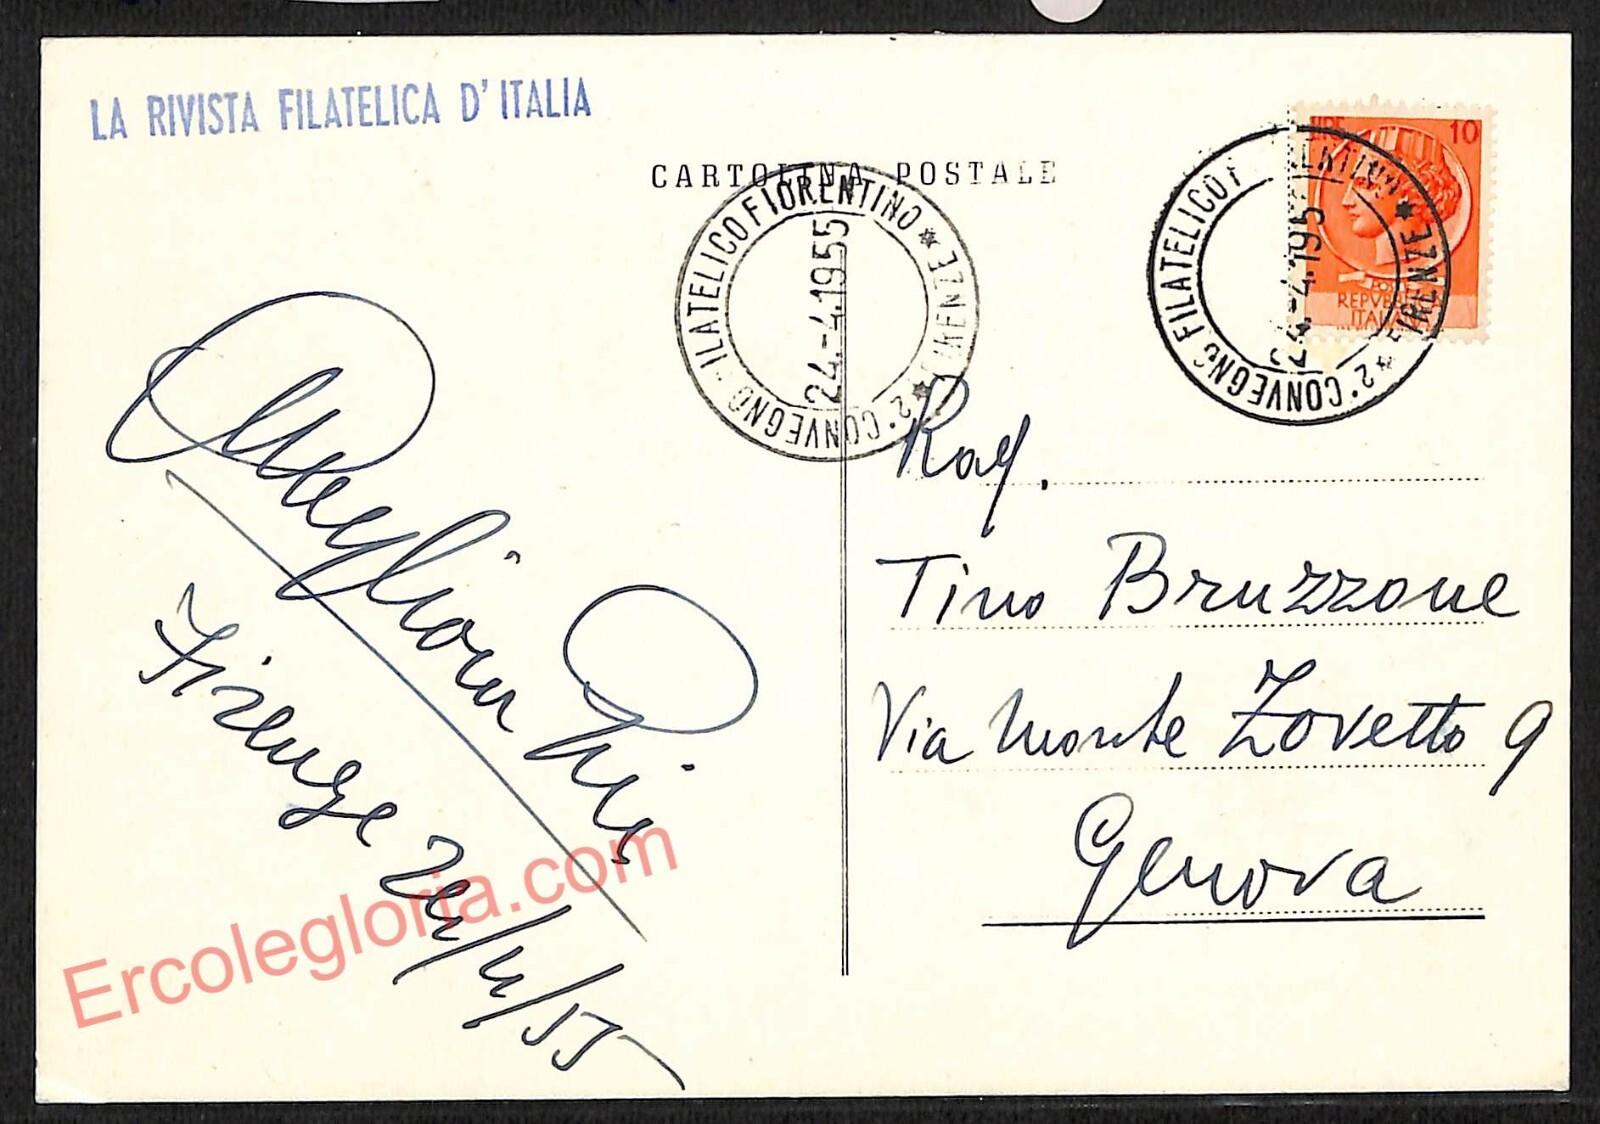 LA RIVISTA FILATELICA D'ITALIA
CARTOLINA POSTALE
2° CONVEGNO FILATELICO FIORENTINO * FIRENZE *
24.-4.1955
2° CONVEGNO FILATELICO FIORENTINO * FIRENZE *
24.-4.195
LIRE 10
POSTE
REPVBBLICA
ITALIANA
Firenze 24/4/55
Rag.
Tino Bruzzone
Via Monte Zovetto 9
Genova
Ercolegloria.com